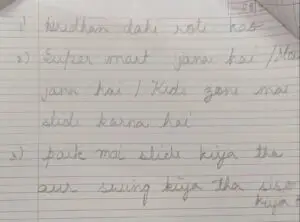 1) dahi roti kao
2) Super mart jana hai /
jana hai / Kids zone mai
slide karna hai
3) park mai slide kiya tha
aur swing kiya tha siso
kiya